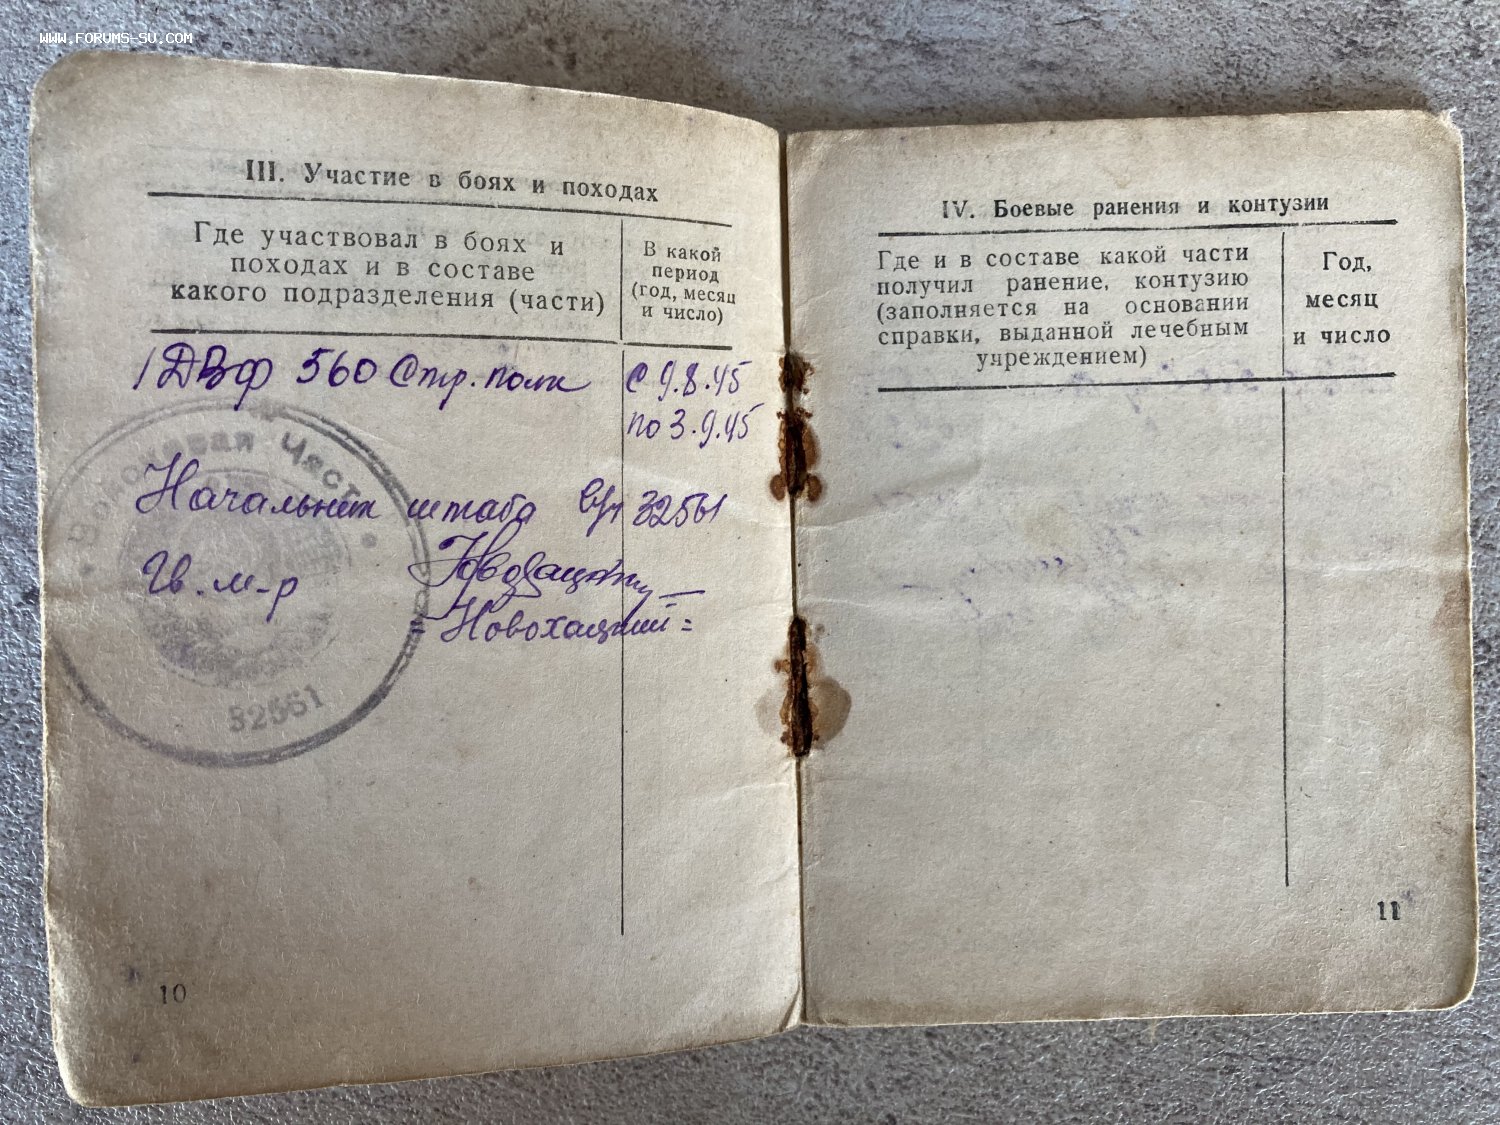 WWW.FORUMS-SU.COM
III. Участие в боях и походах
Где участвовал в боях и
походах и в составе
какого подразделения (части)
В какой
период
(год, месяц
и число)
1 ДВФ 560 Стр. полк
с 9.8.45
по 3.9.45
Начальник штаба в/ч 32561
Гв. м-р
= Новохацкий =
Войсковая Часть
32561
10
IV. Боевые ранения и контузии
Где и в составе какой части
получил ранение, контузию
(заполняется на основании
справки, выданной лечебным
учреждением)
Год,
месяц
и число
11